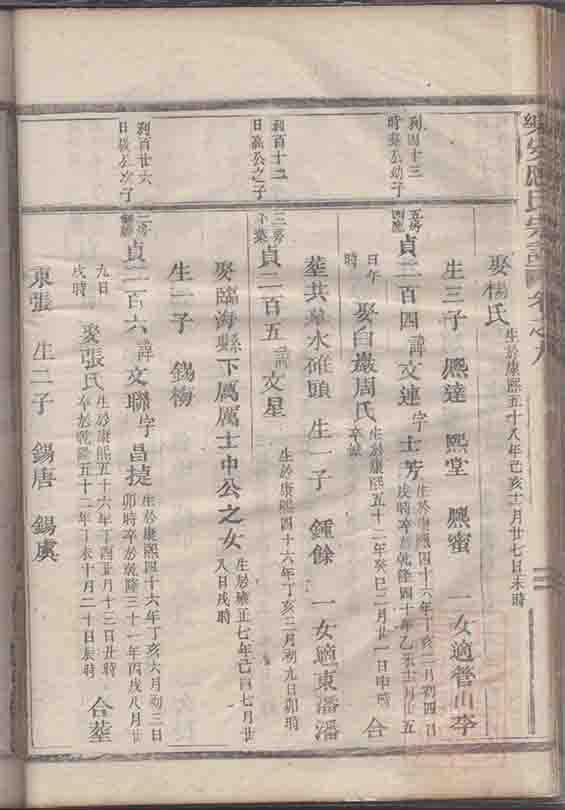 樂安應氏宗譜 卷之九
娶楊氏 生於康熙五十八年己亥十二月廿七日未時
生三子 熈達 熙堂 熈蜜 一女適管山李
列四十三
時泰公幼子
五房
貞二百四 諱文連 字士芳 生於康熙四十六年丁亥二月初四日
戌時卒於乾隆四十年乙未十二月廿五
日午時 娶白巖周氏 生於康熙五十二年癸巳二月廿一日申時
卒缺 合
塟共 水碓頭 生一子 鍾餘 一女適東潘潘
列百十二
日 公之子
三房
貞二百五 諱文星 生於康熙四十六年丁亥三月初九日卯時
娶臨海縣下厲厲士中公之女 生於雍正七年己酉七月廿
八日戌時
生一子 錫梅
列百廿六
日 公次子
二房
貞二百六 諱文聯 字昌㨗 生於康熙四十六年丁亥六月初三日
卯時卒於乾隆三十一年丙戌八月廿
九日
戌時 娶張氏 生於康熙五十六年丁酉廿月十三日丑時
卒於乾隆五十二年丁未十月二十日辰時 合塟
東張 生二子 錫唐 錫虞